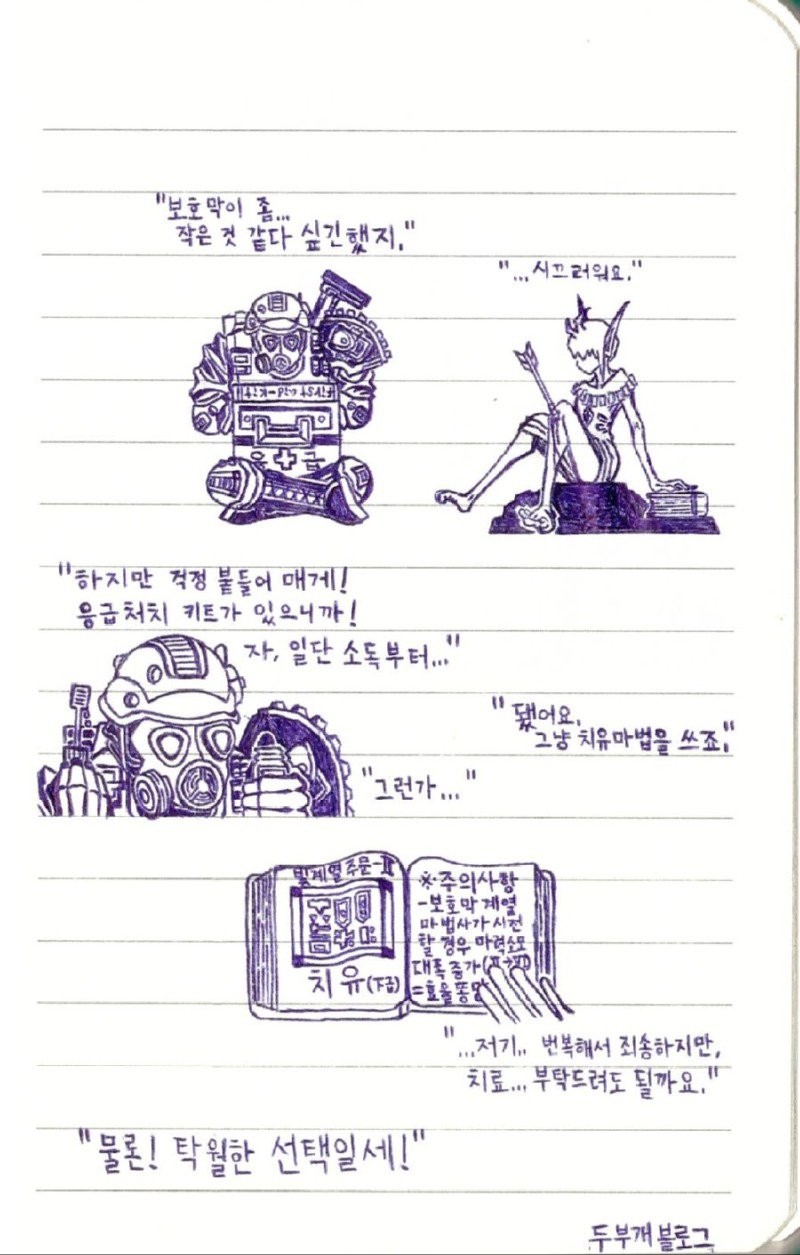 "보호막이 좀...
작은 것 같다 싶긴했지."
"...시끄러워요."
First aid-kit
응✚급
"하지만 걱정 붙들어 매게!
응급처치 키트가 있으니까!
자, 일단 소독부터..."
"됐어요.
그냥 치유마법을 쓰죠."
"그런가..."
빛계열주문-Ⅱ
치유(下급)
※주의사항
-보호막 계열
마법사가 시전
할 경우 마력소모
대폭 증가(Ⅱ→Ⅵ)
=효율똥망
"...저기.. 번복해서 죄송하지만,
치료... 부탁드려도 될까요."
"물론! 탁월한 선택일세!"
두부개블로그